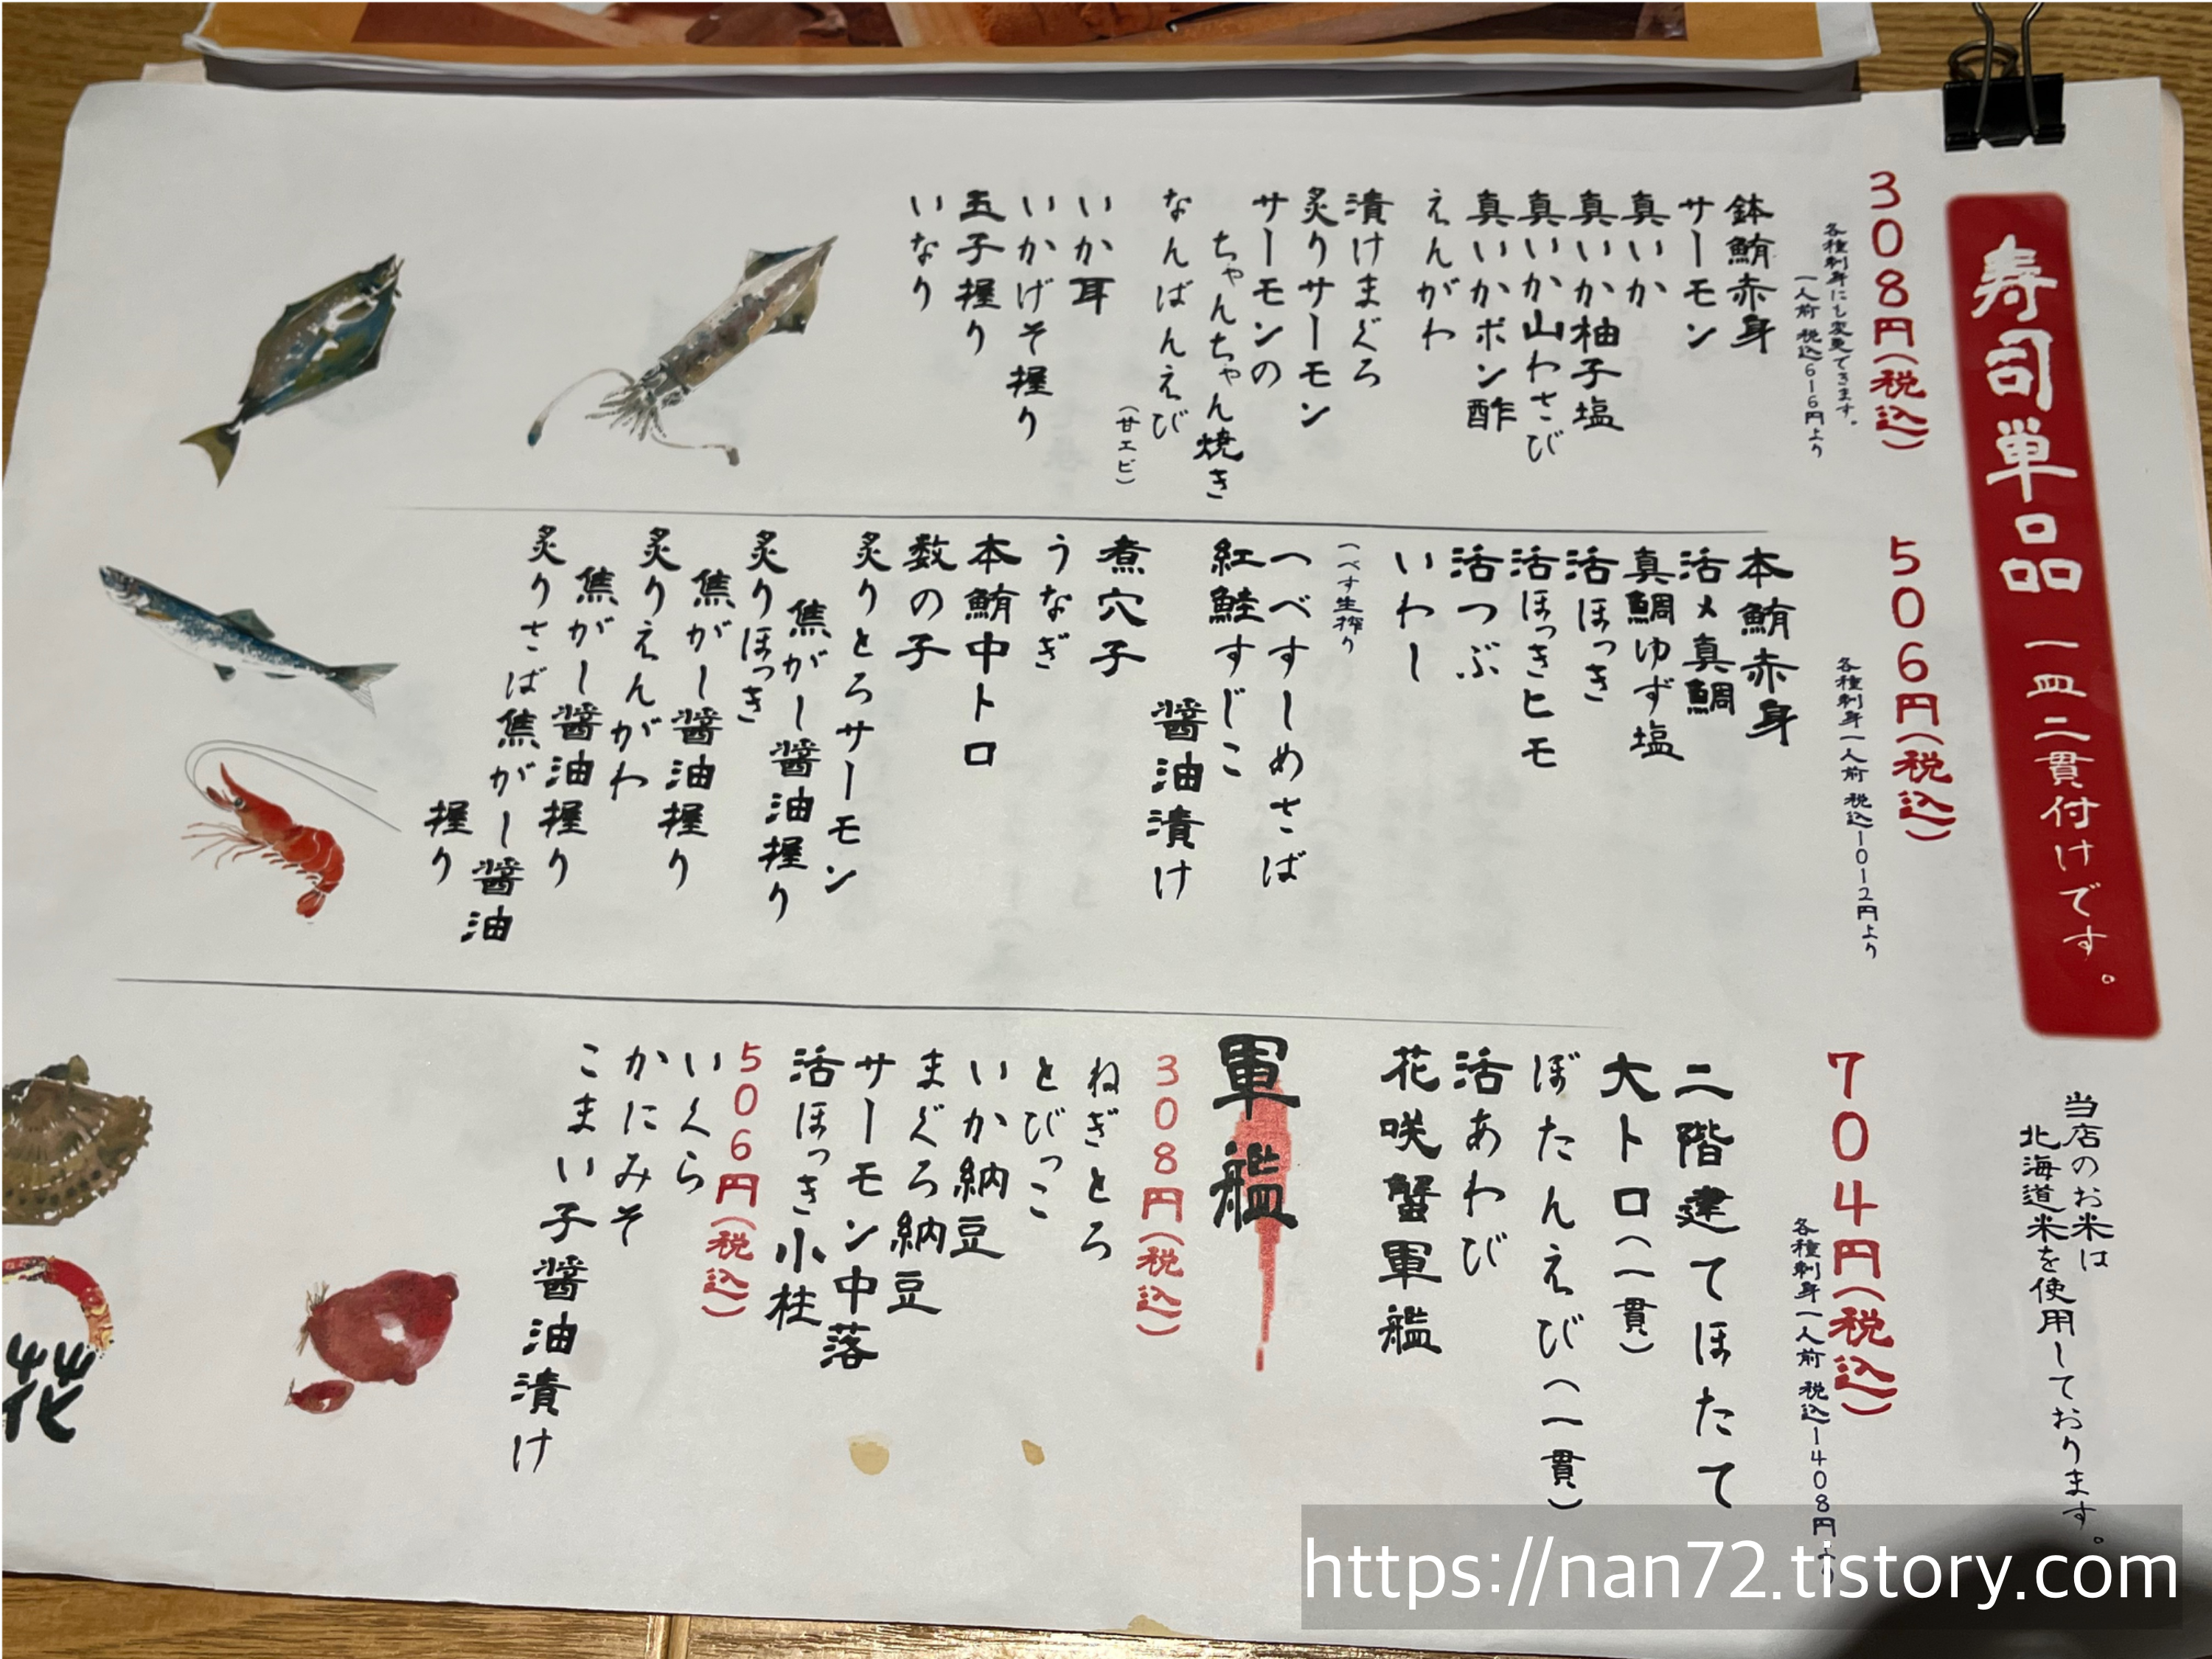 寿司単品 一皿二貫付けです。
当店のお米は
北海道米を使用しております。
308円(税込)
各種刺身にも変更できます。
一人前 税込616円より
鉢鮪赤身
サーモン
真いか
真いか柚子塩
真いか山わさび
真いかポン酢
えんがわ
漬けまぐろ
炙りサーモン
サーモンの
ちゃんちゃん焼き
なんばんえび
(甘エビ)
いか耳
いかげそ握り
玉子握り
いなり
506円(税込)
各種刺身一人前 税込1012円より
本鮪赤身
活〆真鯛
真鯛ゆず塩
活ほっき
活ほっきヒモ
活つぶ
いわし
へべす生搾り
へべすしめさば
紅鮭すじこ
醤油漬け
煮穴子
うなぎ
本鮪中トロ
数の子
炙りとろサーモン
焦がし醤油握り
炙りほっき
焦がし醤油握り
炙りえんがわ
焦がし醤油握り
炙りさば焦がし醤油
握り
704円(税込)
各種刺身一人前 税込1408円より
二階建てほたて
大トロ(一貫)
ぼたんえび(一貫)
活あわび
花咲蟹軍艦
軍艦
308円(税込)
ねぎとろ
とびっこ
いか納豆
まぐろ納豆
サーモン中落
活ほっき小柱
506円(税込)
いくら
かにみそ
こまい子醤油漬け
花
https://nan72.tistory.com